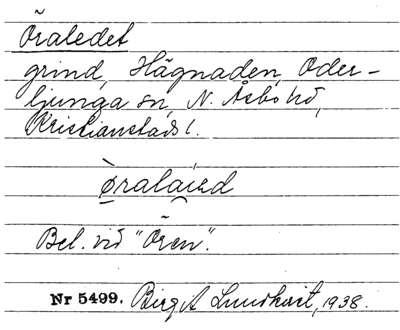 Öraledet
grind, Hägnaden, Oder-
ljunga sn, N. Åsbo hd,
Kristianstads l.
Bel. vid "Ören".
Nr 5499. Birgit Lundkvist, 1938.